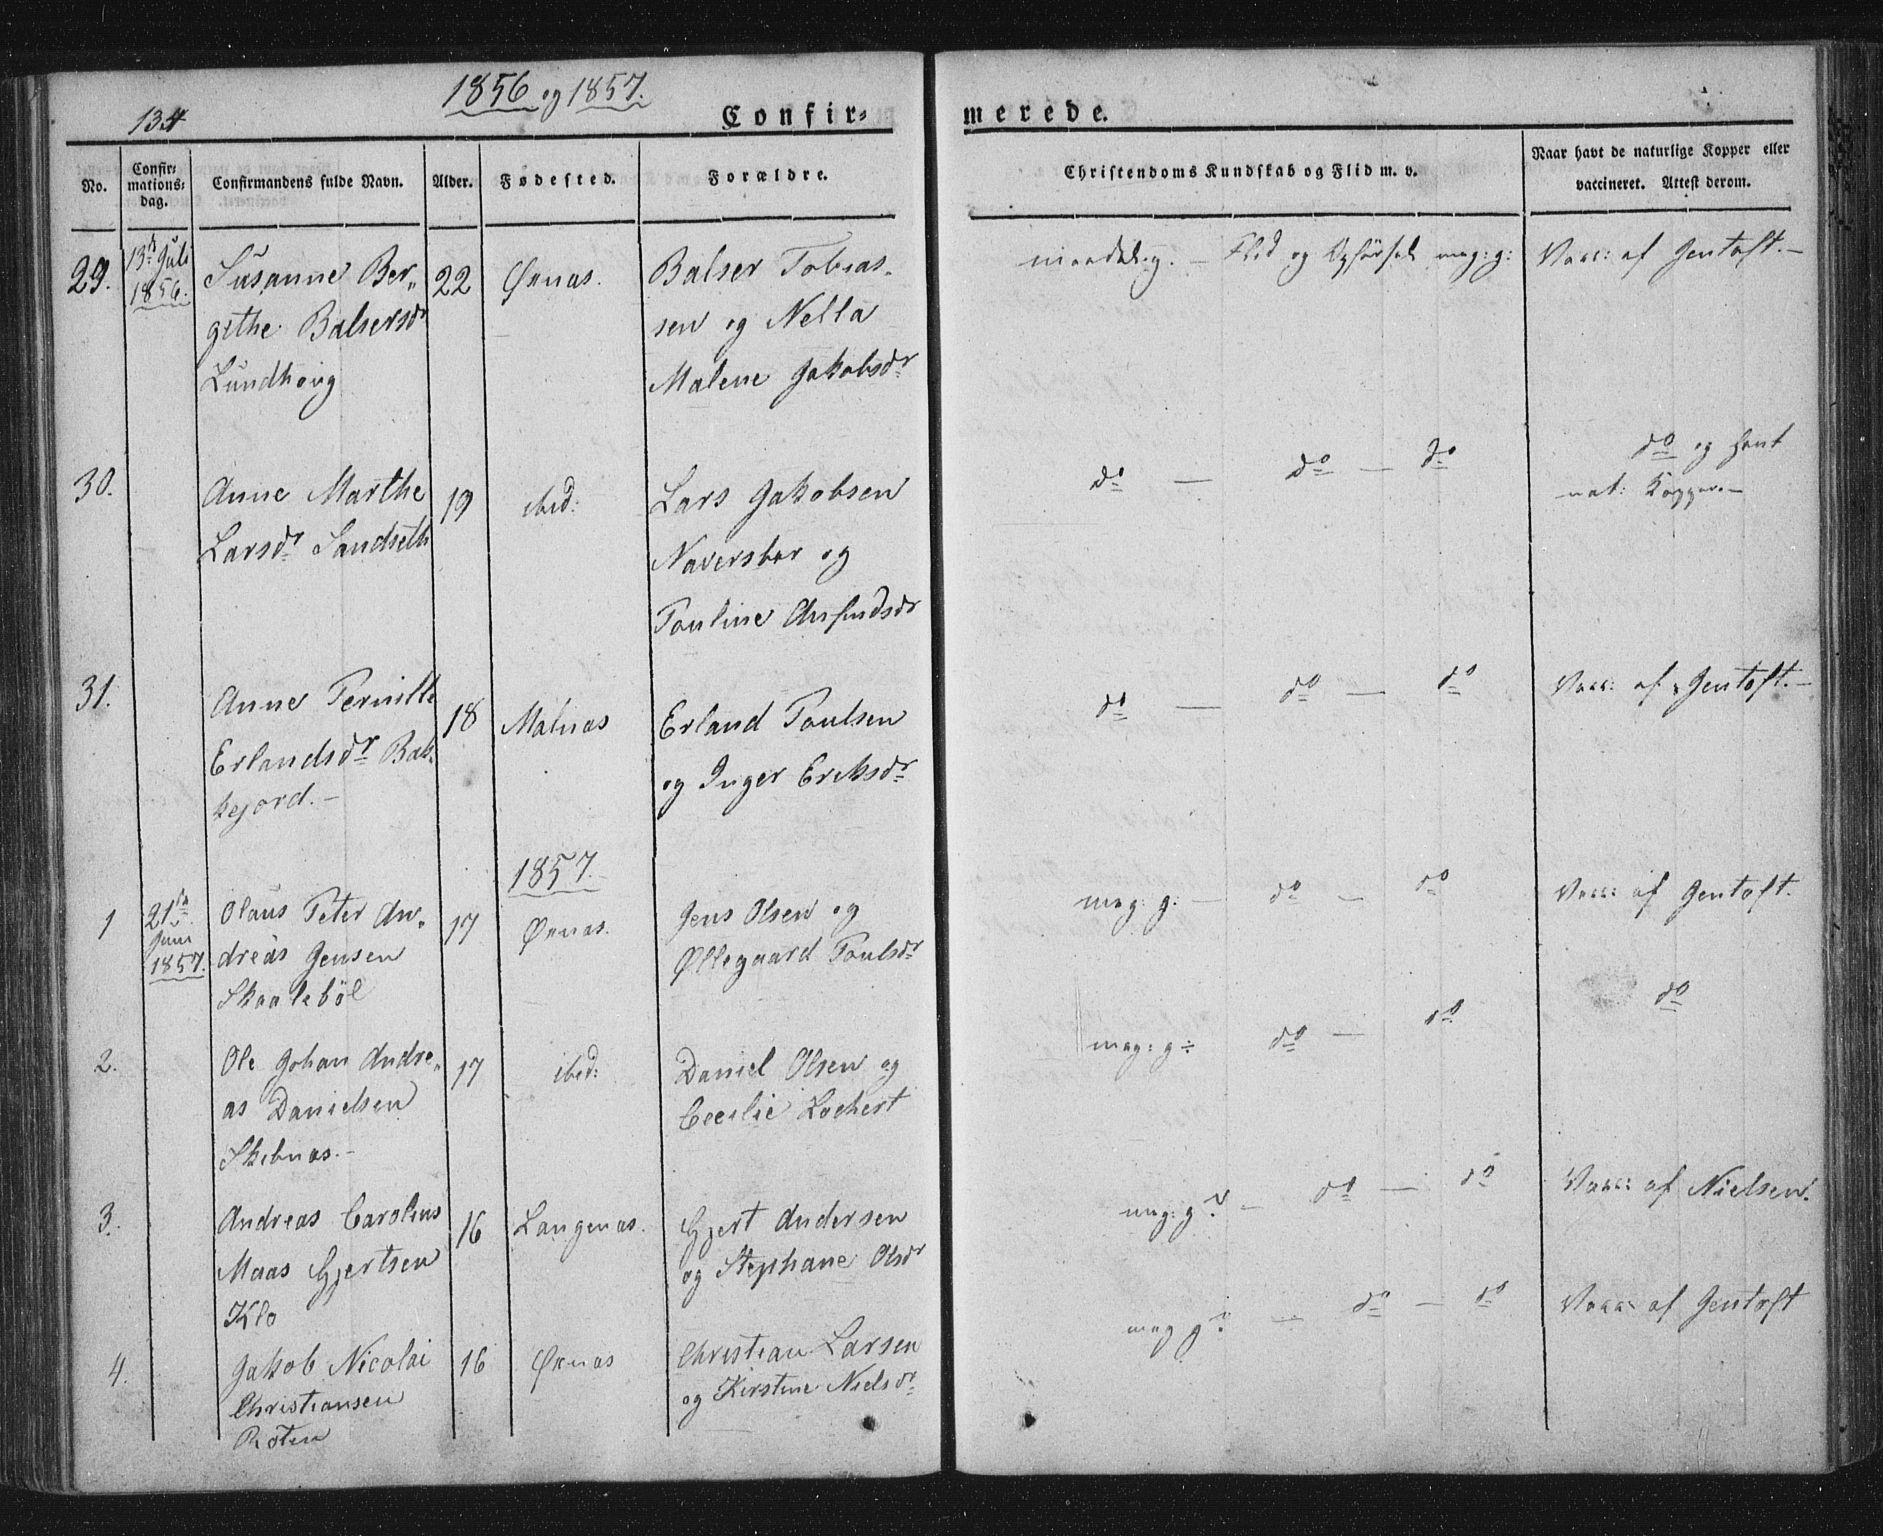 1856 og 1857.
134
Confir-
merede.
No.
Confir-
mations-
dag.
Confirmandens fulde Navn.
Alder.
Fødested.
Forældre.
Christendoms Kundskab og Flid m. v.
Naar havt de naturlige Kopper eller
vaccineret. Attest derom.
29.
13de Juli
1856.
Susanne Ber-
githe Balsersdr
Lundhoug
22
Øxnæs.
Balser Tobias-
sen og Nella
Malene Jakobsdr
maadel. g. — Flid og Opførsel meg: g:
Vacc: af Gentoft. —
30.
Anne Marthe
Larsdr Sandseth
19
ibid:
Lars Jakobsen
Naversbar og
Pouline Anfindsdr
do — do — do
do og havt
nat: Kopper. —
31.
Anne Pernille
Erlandsdr Bal-
kejord. —
18
Malnæs
Erland Poulsen
og Inger Eriksdr
do — do — do
Vacc: af Gentoft. —
1857.
1
21de
Juni
1857.
Olaus Peter An-
dreas Jensen
Skaalebøl
17
Øxnæs.
Jens Olsen og
Øllegaard Poulsdr
meg: g: — do — do
Vacc: af Gentoft.
2.
Ole Johan Andre-
as Danielsen
Skebnæs. —
17
ibid:
Daniel Olsen og
Cecilie Lockert
meg: g: do — do
do
3.
Andreas Carolius
Maas Gjertsen
Klo
16
Langenæs.
Gjert Andersen
og Stephane Olsdr
meg: g: — do — do
Vacc: af Nielsen.
4.
Jakob Nicolai
Christiansen
Roten
16
Øxnæs
Christian Larsen
og Kirstine Nielsdr
meg g: — do — do
Vacc: af Gentoft